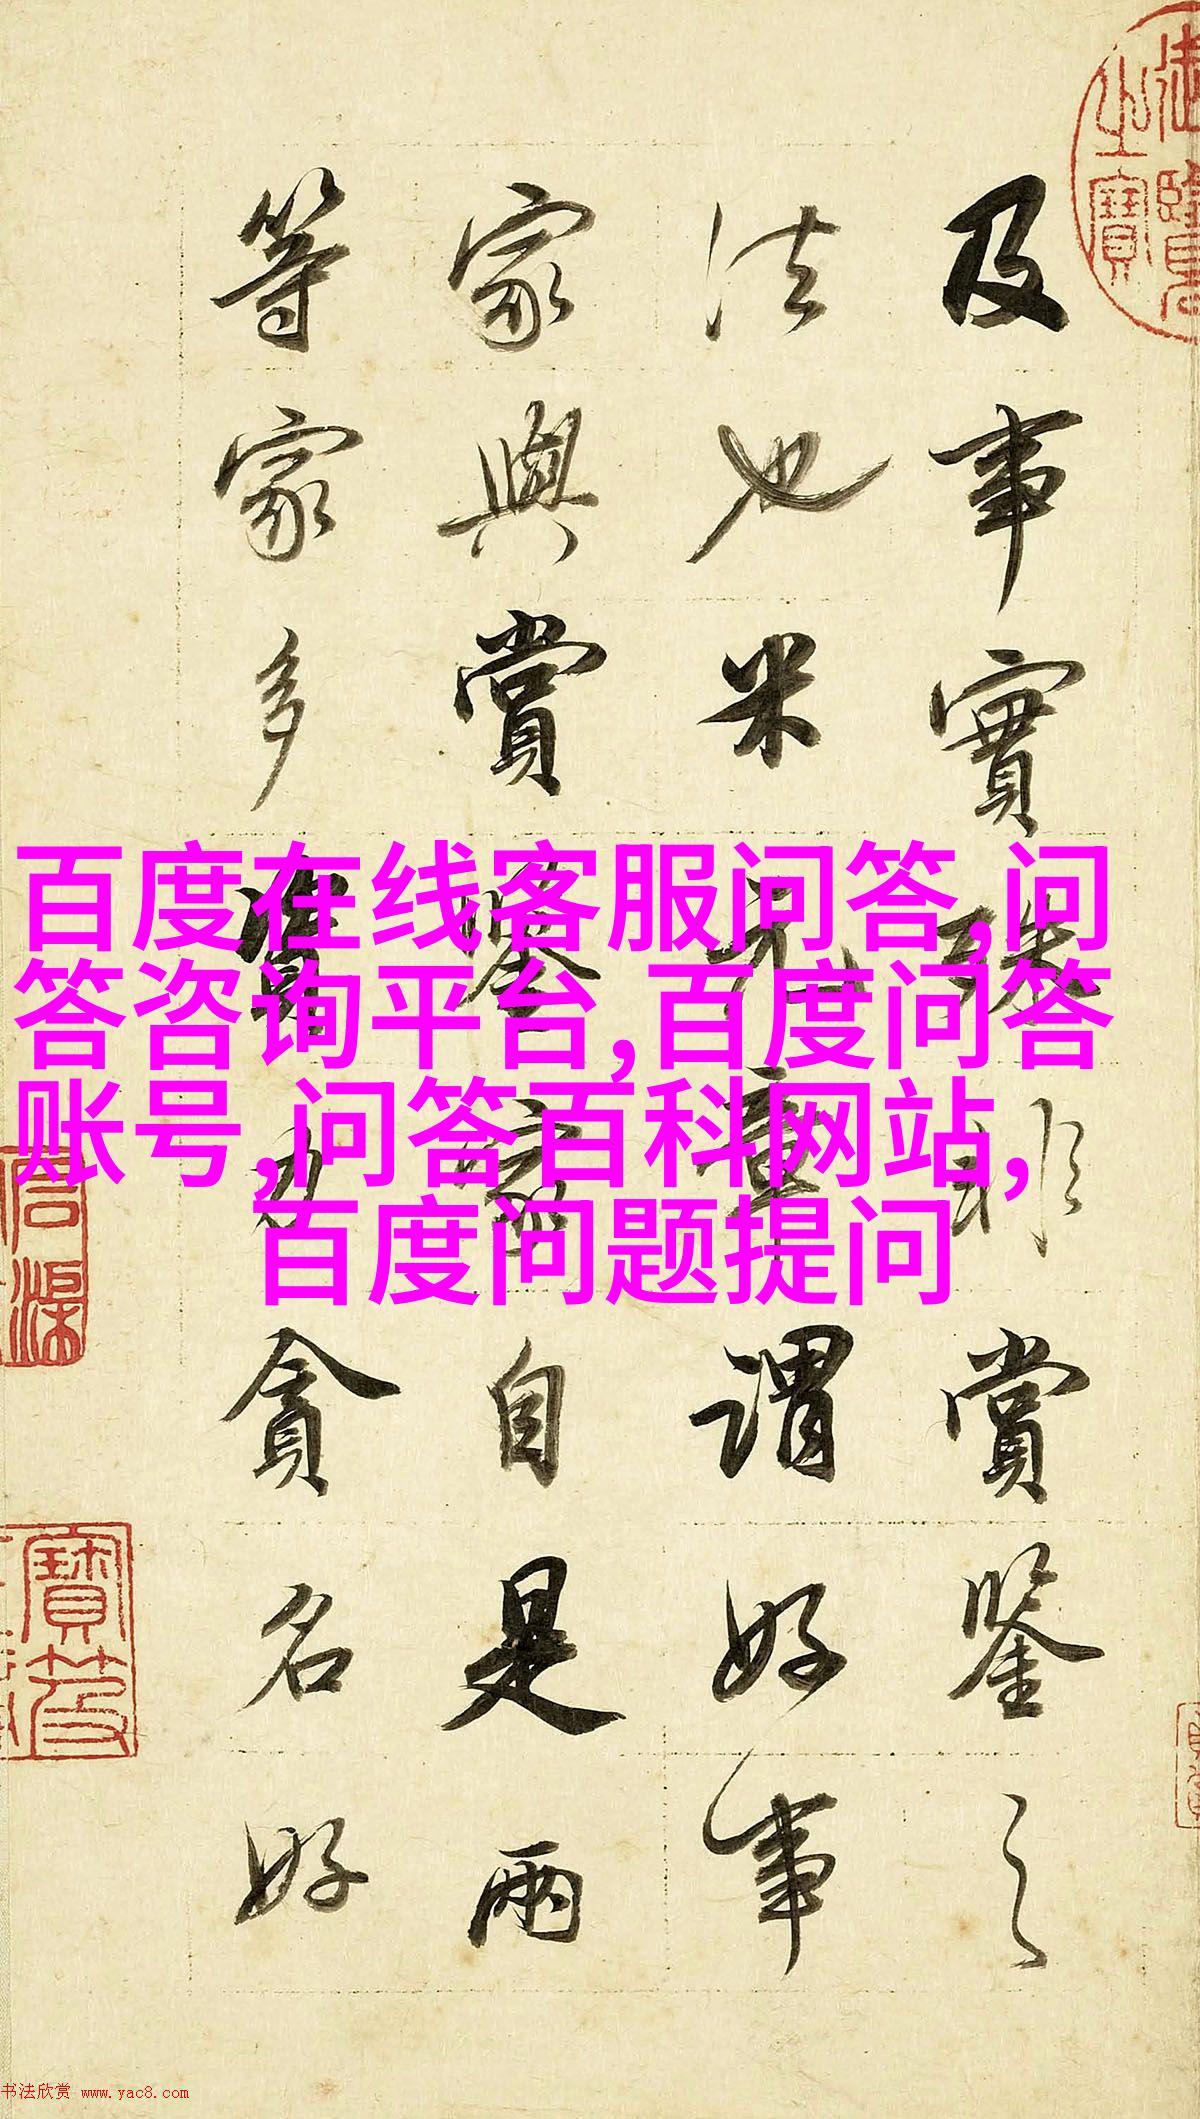 及事實殊非賞鑒之
法也米元章謂好事
家與賞鑒家自是兩
等家多資力貪名好
百度在线客服问答,问
答咨询平台,百度问答
账号,问答百科网站,
百度问题提问
之寶
寶笈
书法欣赏 www.yac8.com